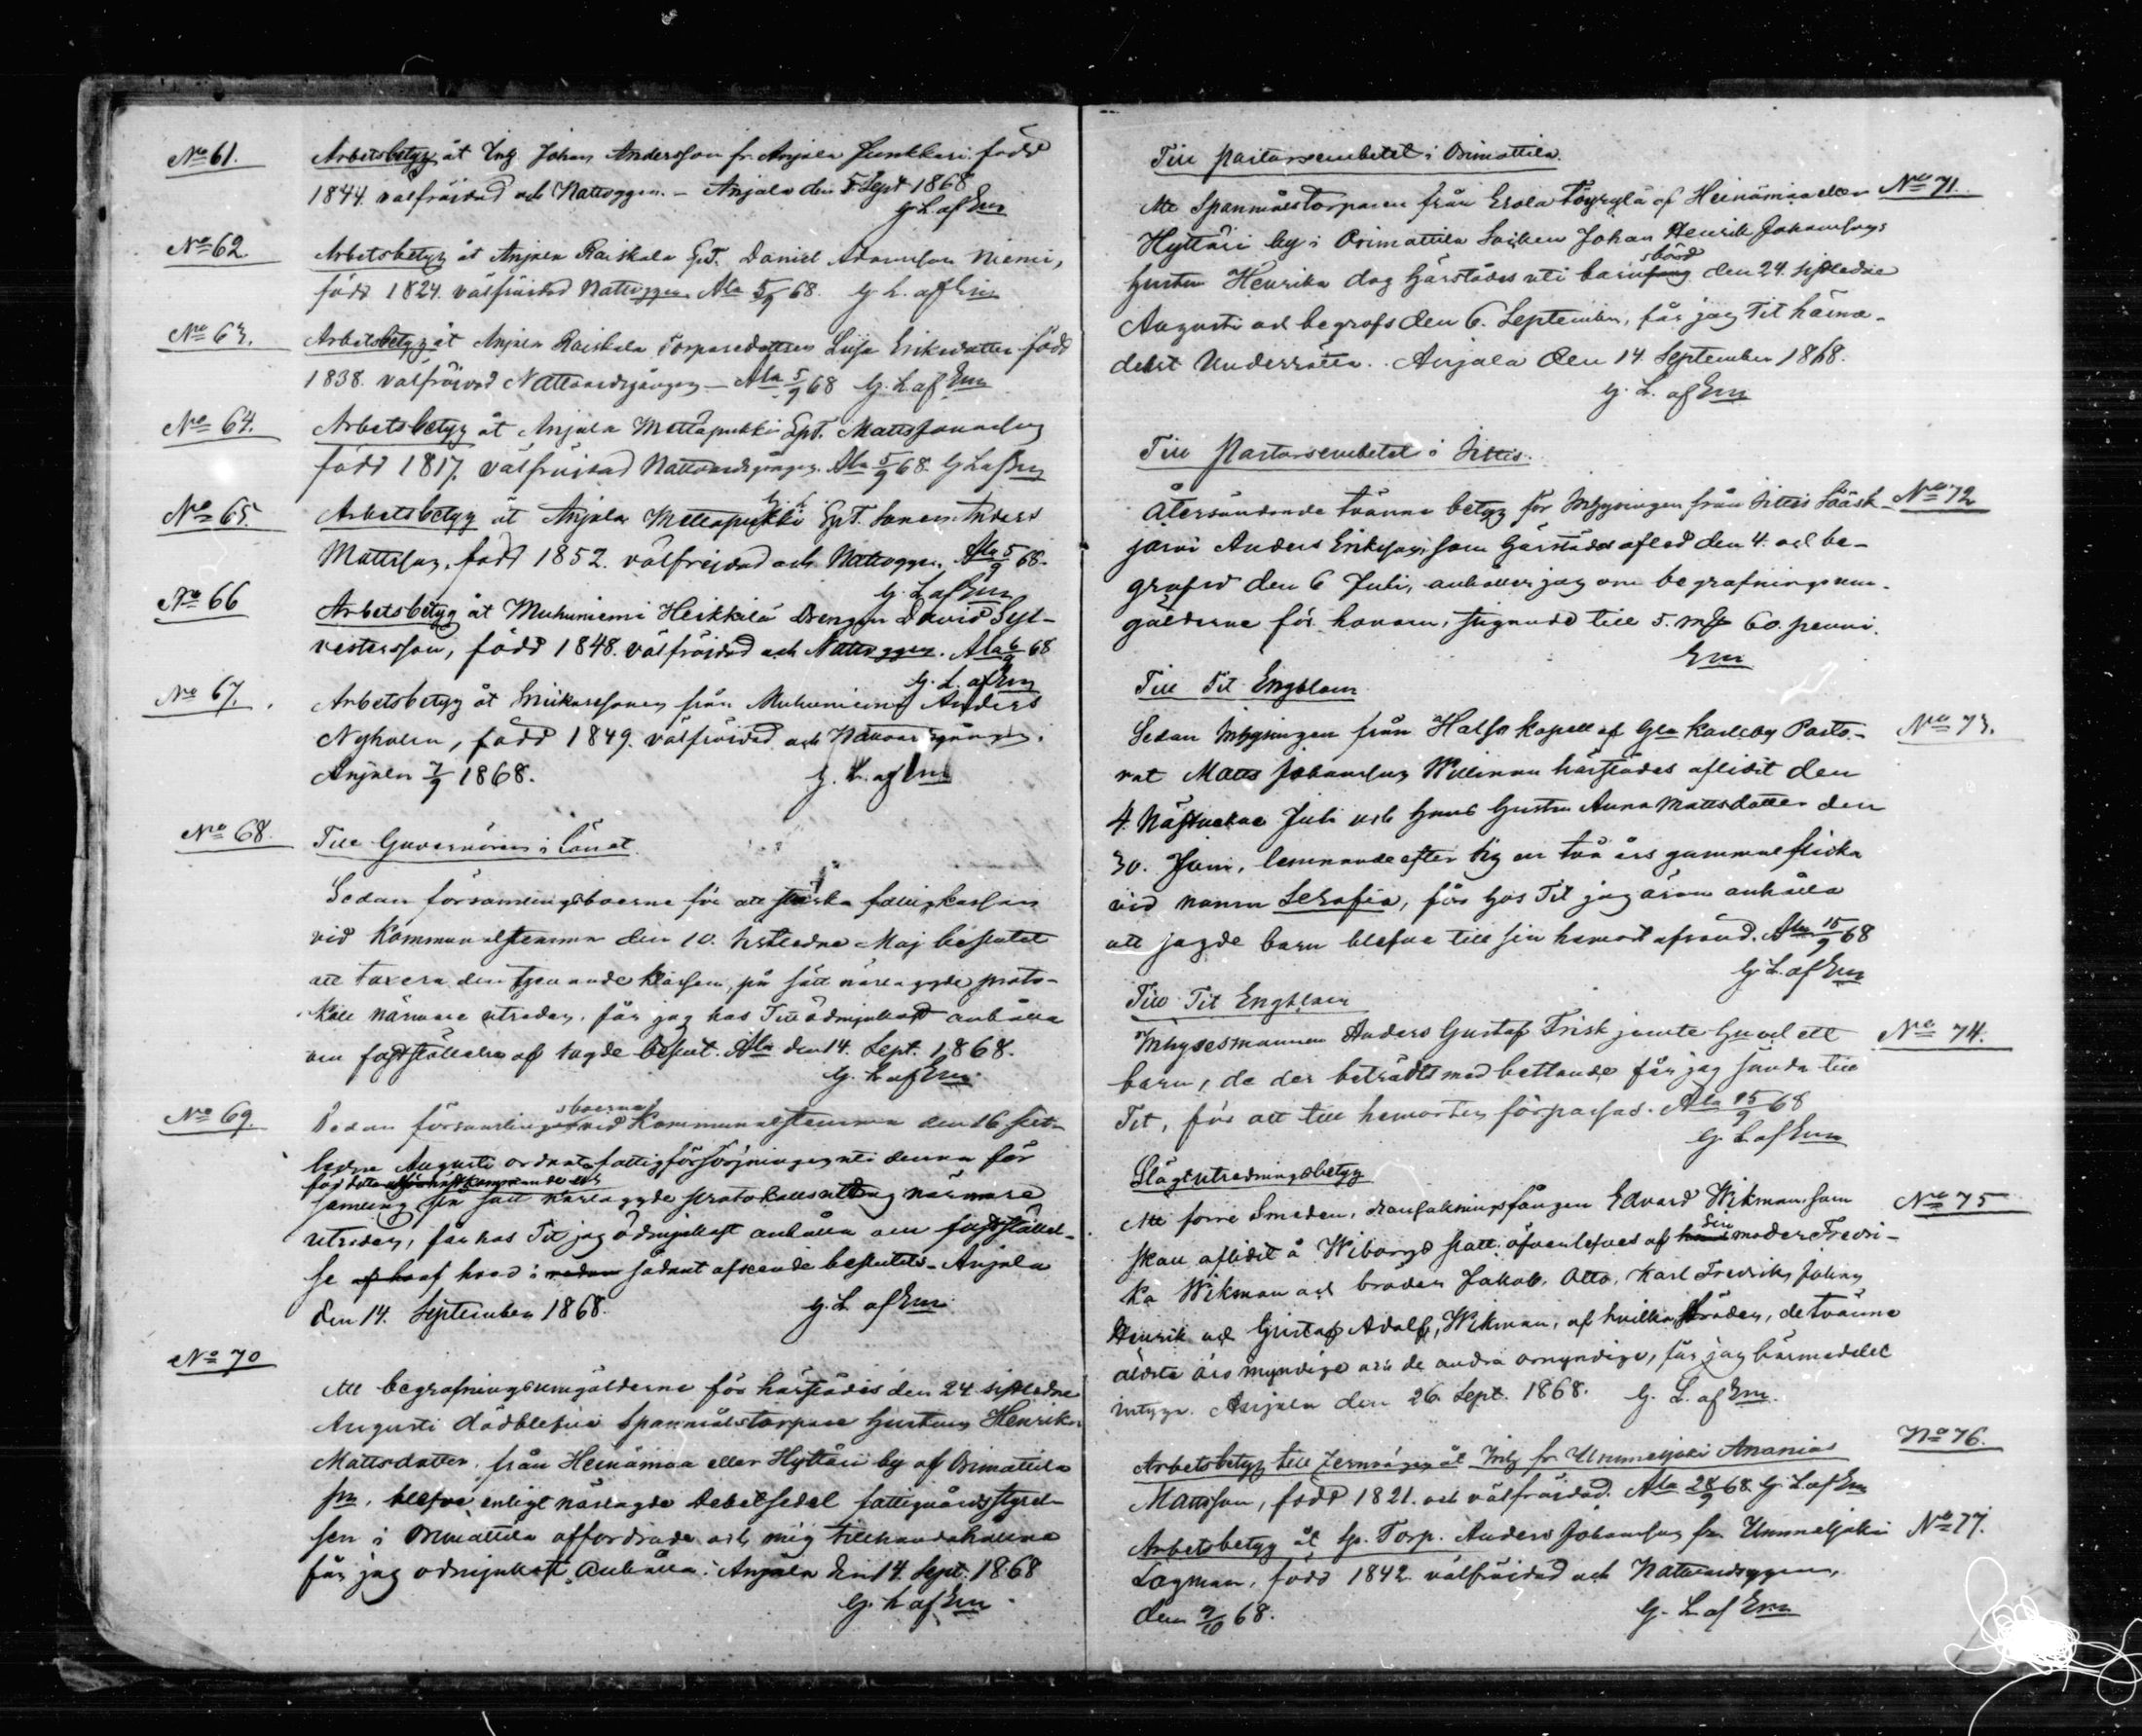 No 61. Arbetsbetyg åt Inh. Johan Andersson fr. Anjala Junkkari född
1844. välfräjdad och Nattvggn. – Anjala den 5 Sept 1868
G. L. af Em
No 62. Arbetsbetyg åt Anjala Raiskala Daniel Adamsson Niemi,
född 1824. välfräjdad Nattvggn Ala 5/9 68. G. L. af Em
No 63. Arbetsbetyg åt Anjala Raiskala Torparedottren Lisa Eriksdotter född
1838. välfräjdad Nattvardsgången – Ala 5/9 68 G. L. af Em
No 64. Arbetsbetyg åt Anjala Mettäpukki Matts
född 1817. välfräjdad Nattvardsgången. Ala 5/9 68. G L af Em
No 65. Arbetsbetyg åt Anjala Anders
Mattsson, född 1852. välfrejdad och Nattvggn. Ala 5/9 68.
G. L. af Em
No 66 Arbetsbetyg åt Muhniemi Heikkilä Drengen David Syl-
vestersson, född 1848. välfräjdad och Nattvggn. Ala 6/9 68
G. L. af Em
No 67. Arbetsbetyg åt från Muhniemi Anders
Nyholm, född 1849. välfräjdad och Nattvardsgången.
Anjala 7/9 1868. G. L. af Em
No 68. Till Guvernören i Länet.
Sedan församlingsboerne för att stärka fattigkassan
vid Kommunalstämma den 10. sistledne Maj beslutat
att taxera den tjenande klassen, på sätt närlagde proto-
koll närmare utreder, får jag hos Tit ödmjukast anhålla
om fastställelse af sagde beslut. Ala den 14. Sept. 1868.
G. L. af Em
No 69. sboerna
Sedan församlings vid Kommunalstämma den 16 sist-
ledne Augusti ordnat fattigförsörjningen uti denna för
för detta kommande
samling på sätt närlagde protokolls utdrag närmare
utreder, får hos Tit jag ödmjukast anhålla om fastställel-
se af hvad i sådant afseende beslutits. Anjala
den 14. September 1868. G. L. af Em
No 70
Att begrafningsumgälderne för härstädes den 24 sistledne
Augusti dödblefne Spanmålstorpare hustrun Henrika
Mattsdotter, från Heinämaa eller Hyttäri by af Orimattila
sn, blefve enligt närlagde debetsedel fattigvårdsstyrel-
sen i Orimattila affordrade och mig tillhandahållna
får jag ödmjukast anhålla. Anjala den 14. Sept. 1868
G. L. af Em
Till Pastorsembetet i Orimattila.
Att Spanmålstorparen från Erola Töyrylä af Heinämaa eller No 71.
Hyttäri by i Orimattila Socken Johan Henrik Johanssons
sbörd
hustru Henrika dog härstädes uti barn den 24. sistledne
Augusti och begrofs den 6. September, får jag Tit härme-
delst Underrätta. Anjala den 14. September 1868.
G. L. af Em
Till Pastorsembetet i Sittis.
Återsändande tvänne betyg för Inhysingen från Sittis Sääsk- No 72
järvi Anders Eriksson, som härstädes afled den 4. och be-
grofvs den 6 Juli, anhåller jag om begrafningsum-
gälderne för honom, stigande till 5. mk 60. penni.
Em
Till Tit Engblom
Sedan Inhysingen från Halso Kapell af Gla Karleby Pasto- No 73.
rat Matts Johansson härstädes aflidit den
4. Juli och hans hustru Anna Mattsdotter den
30. Juni, lemnande efter sig en två års gammal flicka
vid namn Serafia, får hos Tit jag äran anhålla
att sagde barn blefve till sin hemort afsänd. Ala 15/9 68
G. L. af Em
Till Tit Engblom
Inhysesmannen Anders Gustaf Frisk jemte hu och ett No 74.
barn, de der beträdts med bettlande får jag sända till
Tit, för att till hemorten förpassas. Ala 15/9 68
G. L. af Em
Slägtutredningsbetyg
Att förre Smeden, ransakningsfången Edvard Wikman, som No 75
sin
skall aflidit å Wiborgs slott, öfverlefves af moder Fredri-
ka Wikman och bröder Jakob, Otto, Karl Fredrik, Johan
Henrik och Gustaf Adolf, Wikman, af hvilka bröder, de tvänne
äldsta äro myndige och de andra omyndige, får jag härmedelst
intyga. Anjala den 26. Sept. 1868. G. L. af Em.
Arbetsbetyg till Jernvägen åt Inh fr Ummeljoki Ananias No 76.
Mattsson, född 1821. och välfräjdad. Ala 28/9 68. G. L. af Em
Arbetsbetyg åt Sp. Torp. Anders Johansson fr. Ummeljoki No 77.
Lagman, född 1842 välfräjdad och Nattvardsggn.
den 9/10 68. G. L. af Em